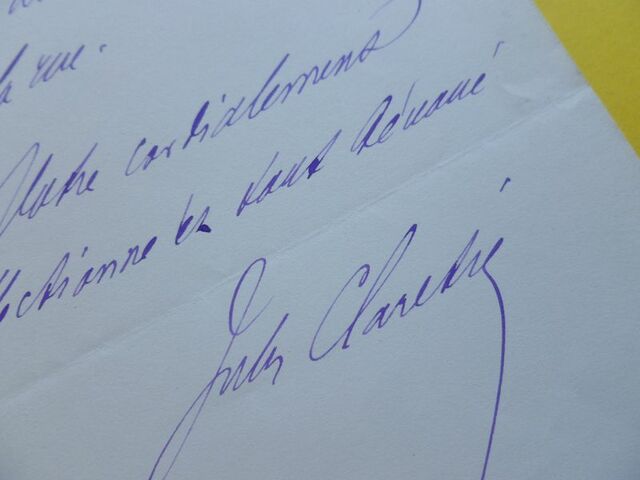 la rue.
Votre cordialement
ffectionné et tout dévoué
Jules Claretie